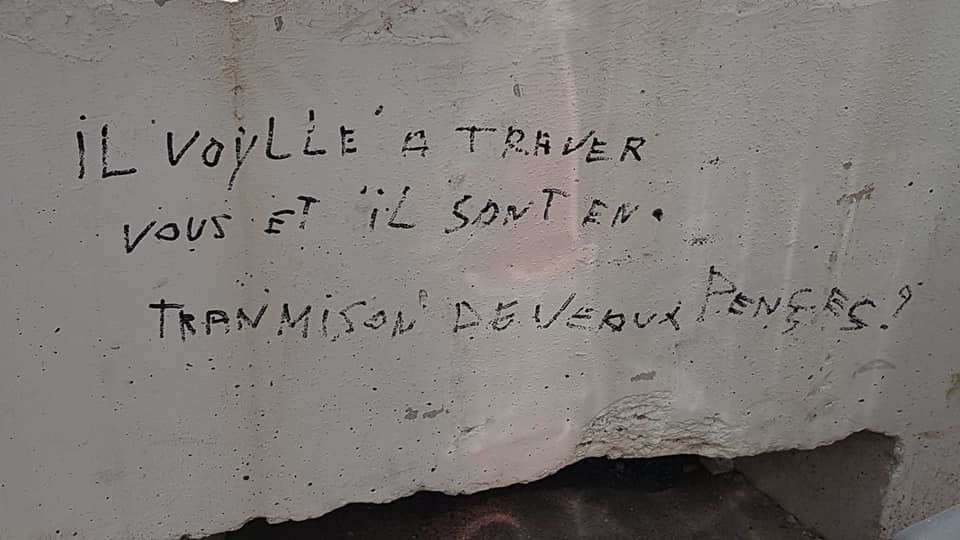 IL VOYLLE A TRAVER
VOUS ET IL SONT EN.
TRANMISON DE VEAUX PENSES?